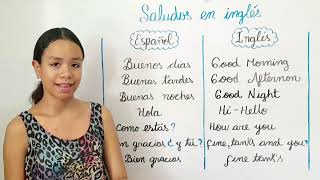 Saludos en inglés
Español Inglés
Buenos dias Good Morning
Buenas tardes Good Afternon
Buenas noches Good Night
Hola Hi-Hello
Como estás? How are you
en gracias ¿y tú? fine, tanks and you?
Bien gracias fine tank's